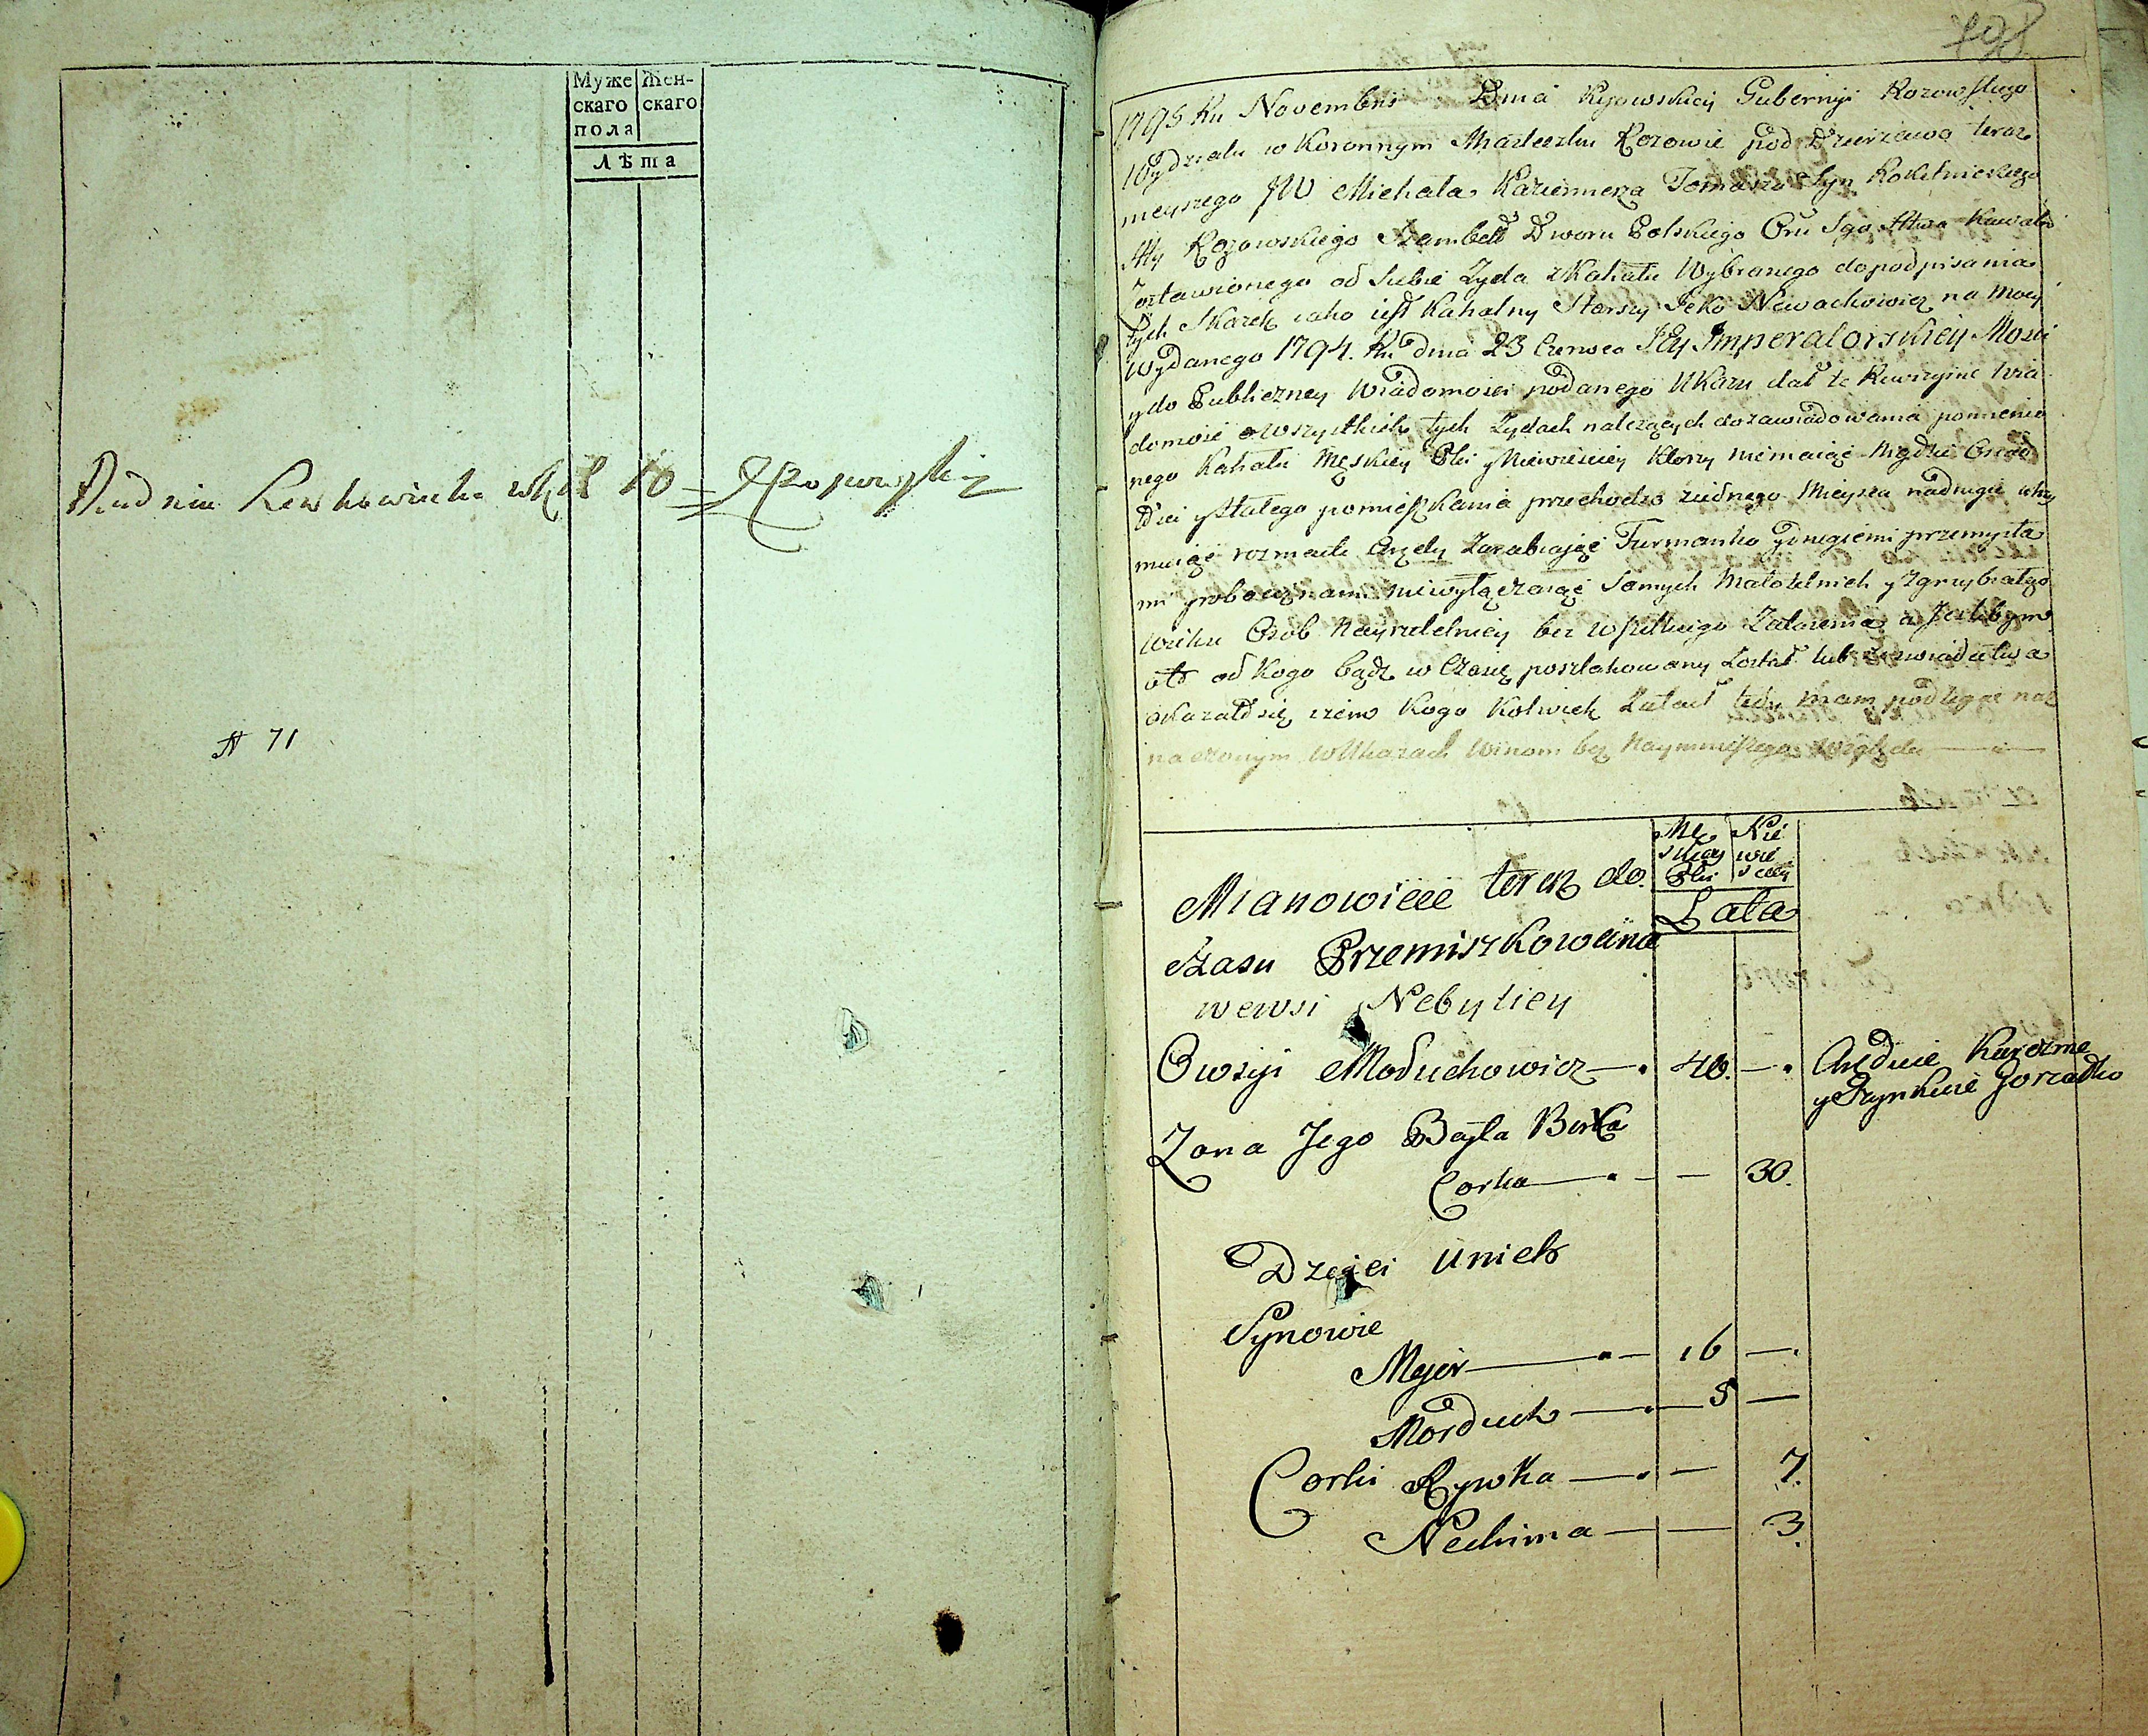 Муже
скаго
пола
Жен-
скаго
Лѣта
Rudnia
10
N 71
798
1795 Ru Novembris Dnia Kijowskiey Gubernyi Rozowskiego
Wydziału w Koronnym Miasteczku Rozowie pod Dzierzawą teraz
nieyszego JW Michała Kazimierza Tomasza Syn Rokitnickiego
Rozowskiego Szambell Dworu Polskiego Oru Sgo Stwa Kawalera
Zostawionego od Siebie Zyda z Kahału Wybranego do podpisania
tych Skazek iako iest Kahalny Starszy Jcko Newachowicz na mocy
wydanego 1794. Ru dnia 23 Czerwca Jey Imperatorskiey Mosci
y do Publiczney Wiadomosci podanego Ukazu dał te Rewizyine wia
domosc o wszystkich tych Zydach nalezących do zawiadowania pomienio
nego Kahału Męskiey Płci y Niewiesciey ktory niemaiąc nigdzie Osiad
łosci y stałego pomieszkania przechodzą ziednego Mieysca nadrugie utrzy
muiąc rozmaite Arędy Zarabiając Furmanką y drugiemi przemysła
mi y robociznami niewyłączaiąc Samych Małoletnich y zgrzybiałego
wieku Osob Nayrzetelniey bez wszelkiego Zataienia, a Jezelibym
oto od Kogo bądz w Czasie poszlakowany Został lub
okazałosię izem Kogo Kolwiek Zataił tedy mam podlegac naz
naczonym w Ukazach Winom bez Naymnieyszego Względu
Mianowicie teraz do
Czasu Przemiszkowania
wewsi Nebyliey
Mę
skiey
Płci
Nie
wie
sciey
Lata
Owsiy Moduchowicz — 40. —
Aręduie Karczmę
y Szynkuie Gorzałko
Zona Jego Bayla Berka
Corka — — 30.
Dzieci unich
Synowie
Mejer — 16 —
Morduch — 5 —
Corki Rywka — — 7.
Nechima — — 3.